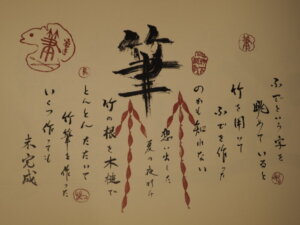 筆
ふでという字を
眺めていると
竹を用いて
ふでを作った
のかも知れない
想い出した
夏の夜
竹の根を木槌で
とんとんたたいて
竹筆を作った
いくつ作っても
未完成